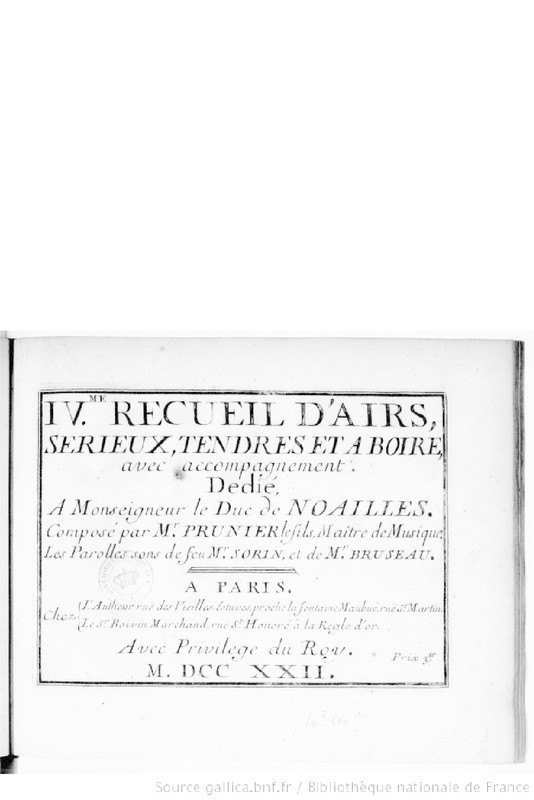 IV.ME RECUEIL D'AIRS,
SERIEUX, TENDRES ET A BOIRE,
avec accompagnement.
Dedié,
A Monseigneur le Duc de NOAILLES.
Composé par Mr. PRUNIER le fils, Maître de Musique,
Les Parolles sons de feu Mr. SORIN, et de Mr. BRUSEAU.
A PARIS.
Chez
L'Autheur rue des Vieilles Estuves, proche la fontaine Maubué, rue St. Martin.
Le Sr. Boivin Marchand, rue St. Honoré à la Regle d'or.
Avec Privilege du Roy.
Prix 3tt
M. DCC XXII.
Source gallica.bnf.fr / Bibliothèque nationale de France